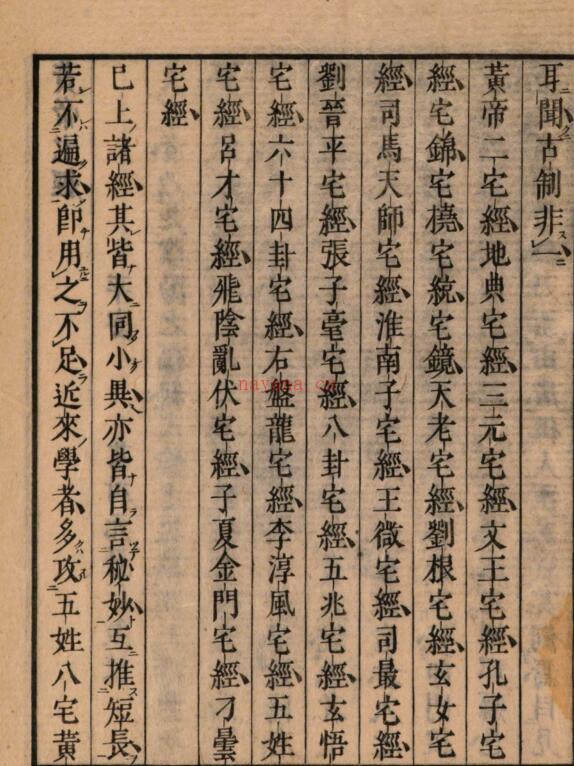 耳聞古制非一
黃帝二宅經地典宅經三元宅經文王宅經孔子宅
經宅錦宅橈宅統宅鏡天老宅經劉根宅經玄女宅
經司馬天師宅經淮南子宅經王微宅經司最宅經
劉晉平宅經張子毫宅經八卦宅經五兆宅經玄悟
宅經六十四卦宅經右盤龍宅經李淳風宅經五姓
宅經呂才宅經飛陰亂伏宅經子夏金門宅經刁曇
宅經
已上諸經其皆大同小異亦皆自言秘妙互推短長
若不遍求即用之不足近來學者多攻五姓八宅黃